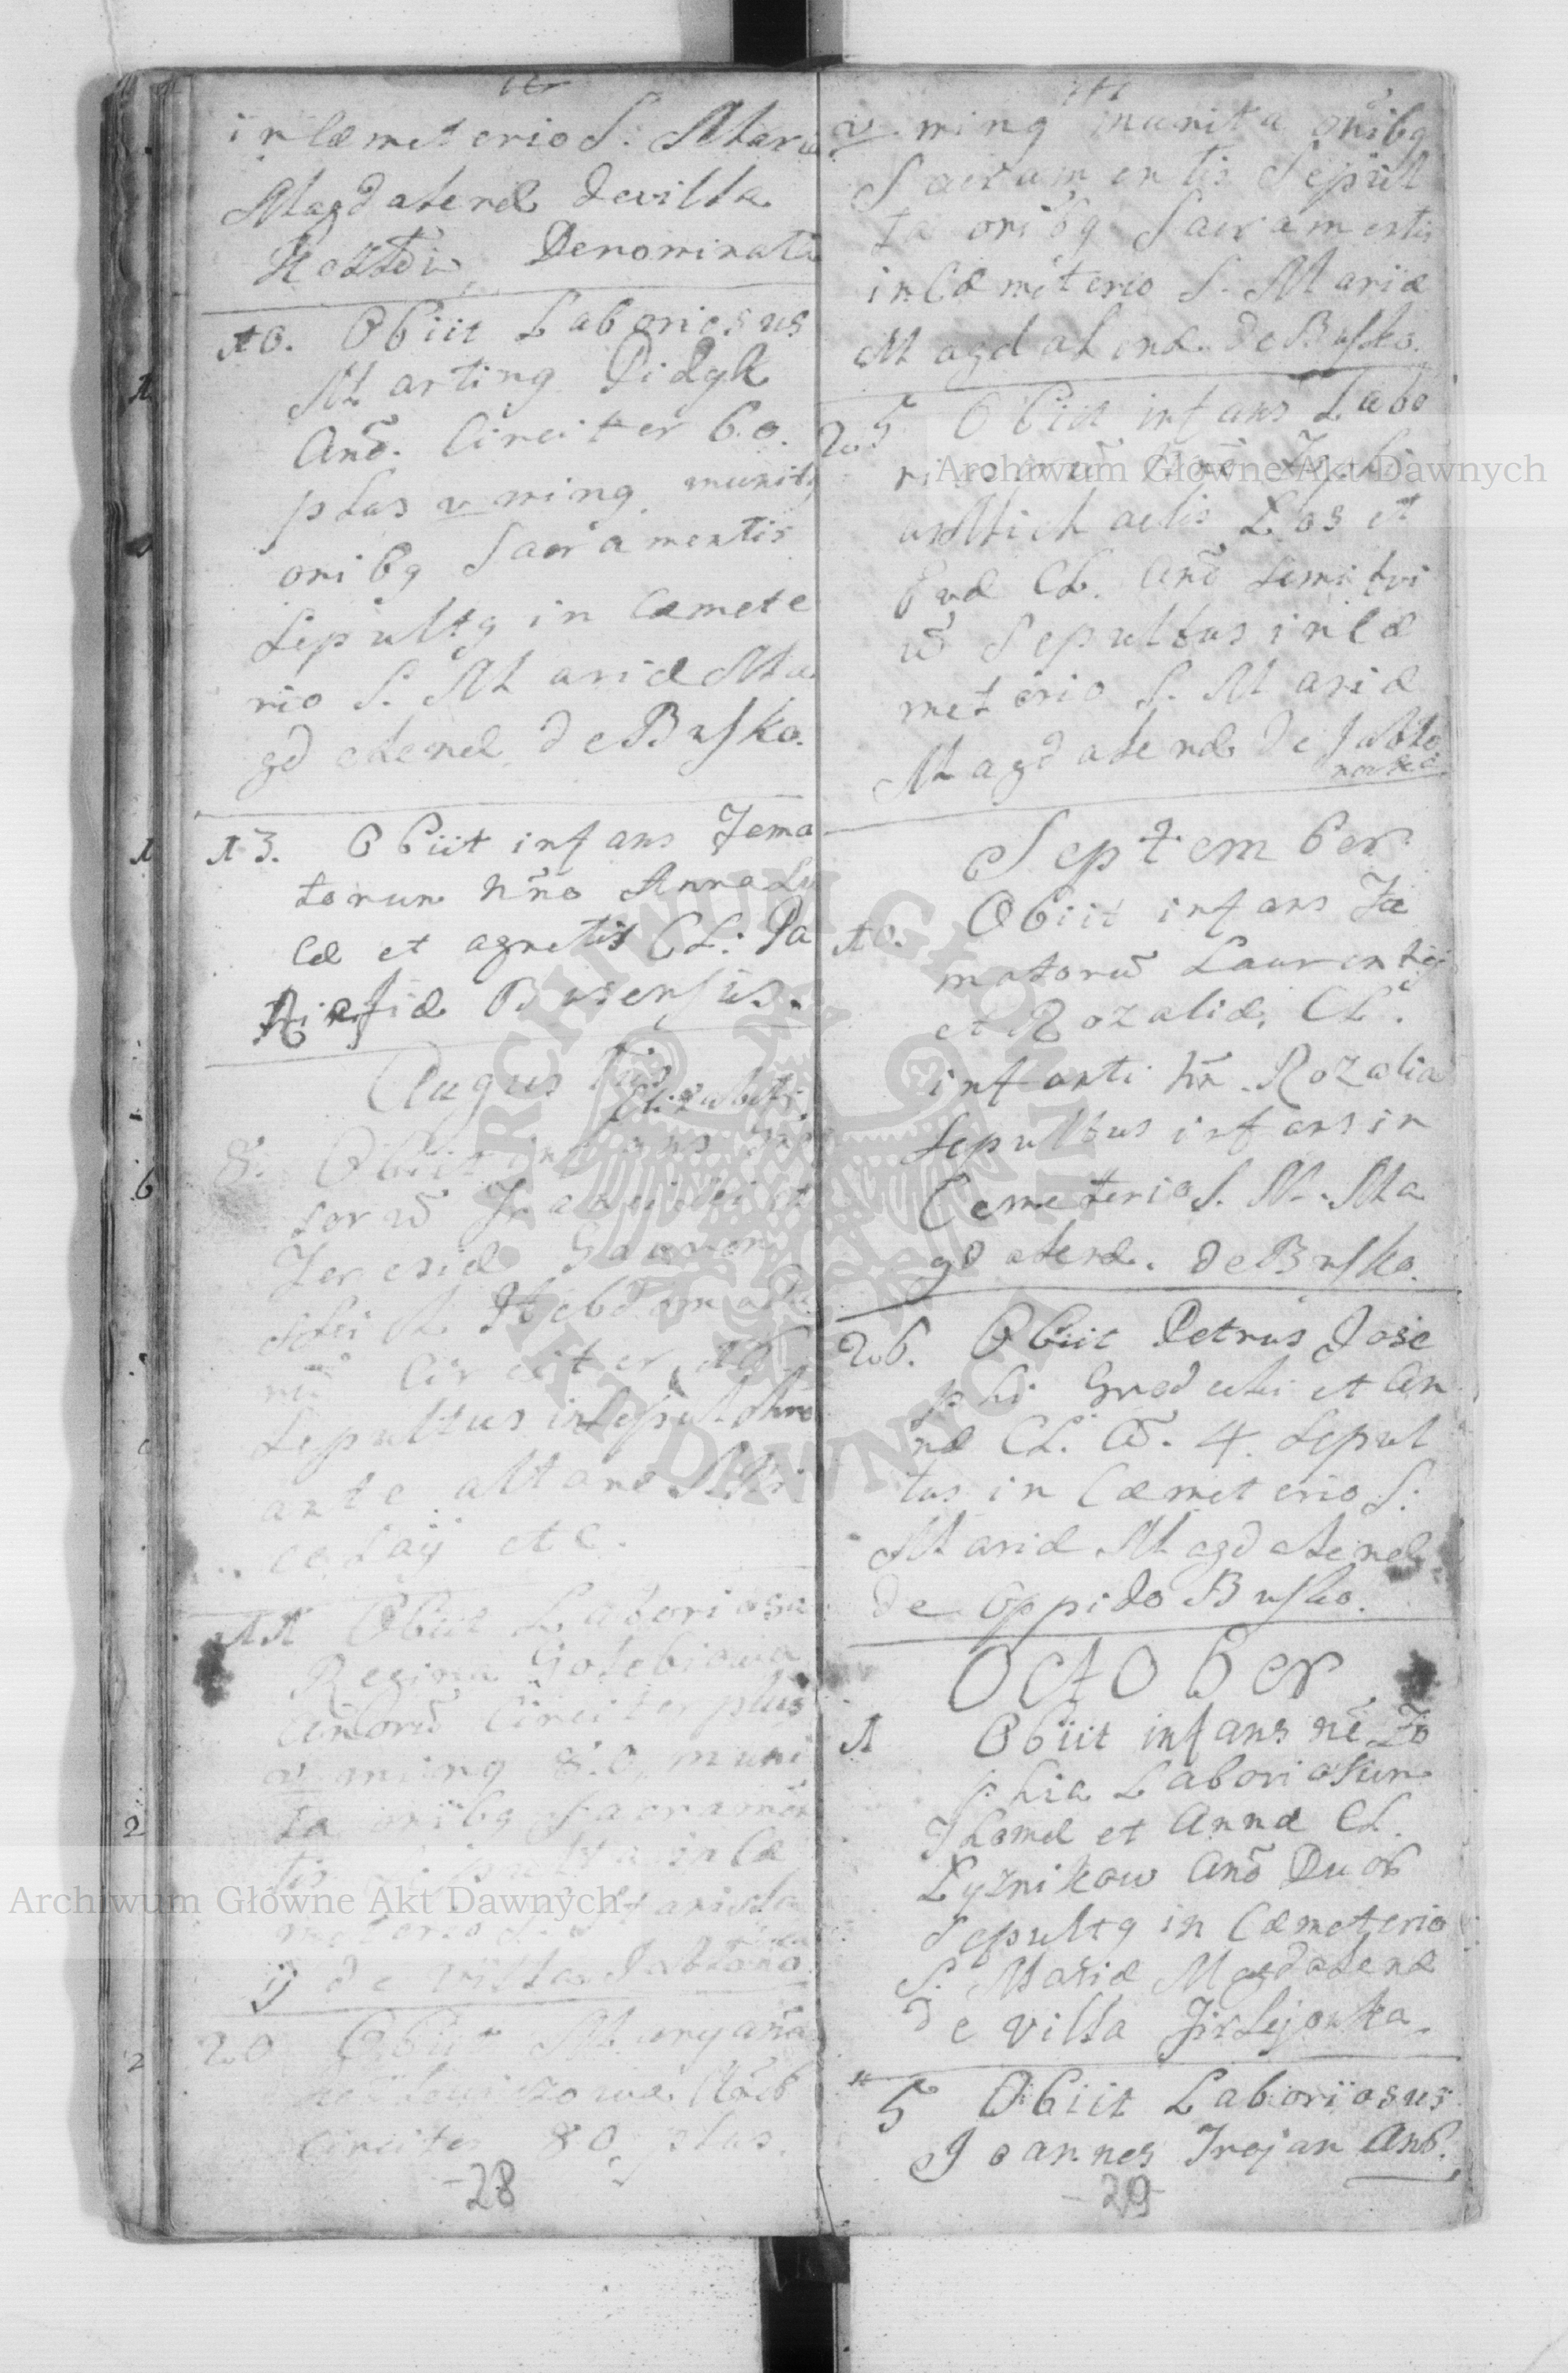 in Cæmeterio S. Maria
Magdalenæ de villa
Denominata
10. Obiit Laboriosus
Marting Didyk
Anō. Circiter 60.
plus v ming munitg
onibg Sacramentis
Sepultg in Cæmete
rio S. Mariæ Ma
gdalenæ de Busko.
13. Obiit infans Fama
torum nño Anna Lu
cæ et agnetis CL. Pa
Busensis.
Augustus
Elizabeth
8. Obiit infans
Francisci et
Teresiæ
Hebdomada
rū Circiter 16
Sepultus in Sepulchro
ante altare S. Ni
colaij etc.
11 Obiit Laboriosa
Regina Gołebiowa
Añorū Circiter plus
v ming 80 muni
ta onibg Sacramen
tis Sepulta in Cæ
meterio S. Mariæ Ma
de villa Jabłono
20 Obiit Maryaña
Circiter 80 plus.
-28
v ming munita onibg
Sacramentis Sepul
ta onibg Sacramentis
in Cæmeterio S. Mariæ
Magdalenæ de Busko.
25 Obiit infans Labo
Michaelis Łos et
Evæ CL. Anō semi tri
ū Sepultus in Cæ
meterio S. Mariæ
Magdalenæ de Jabło
nowka
September
10. Obiit infans Fa
matorū Laurentij
et Rozaliæ CL.
infanti nñ Rozalia
Sepultus infans in
Cemeterio S. M. Ma
gdalenæ. de Busko.
26. Obiit Petrus Jose
phi Grodecki et An
næ CL. Ō. 4. Sepul
tus in Cæmeterio S.
Mariæ Magdalenæ
de oppido Busko.
October
1 Obiit infans nē Zo
phia Laboriosum
Thomæ et Annæ CL.
Łyznikow Anō Duob
Sepultg in Cæmeterio
S. Mariæ Magdalenæ
de villa
5 Obiit Laboriosus
Joannes Trojan Anō.
-29-
Archiwum Główne Akt Dawnych
Archiwum Główne Akt Dawnych
ARCHIWUM GŁÓWNE AKT DAWNYCH